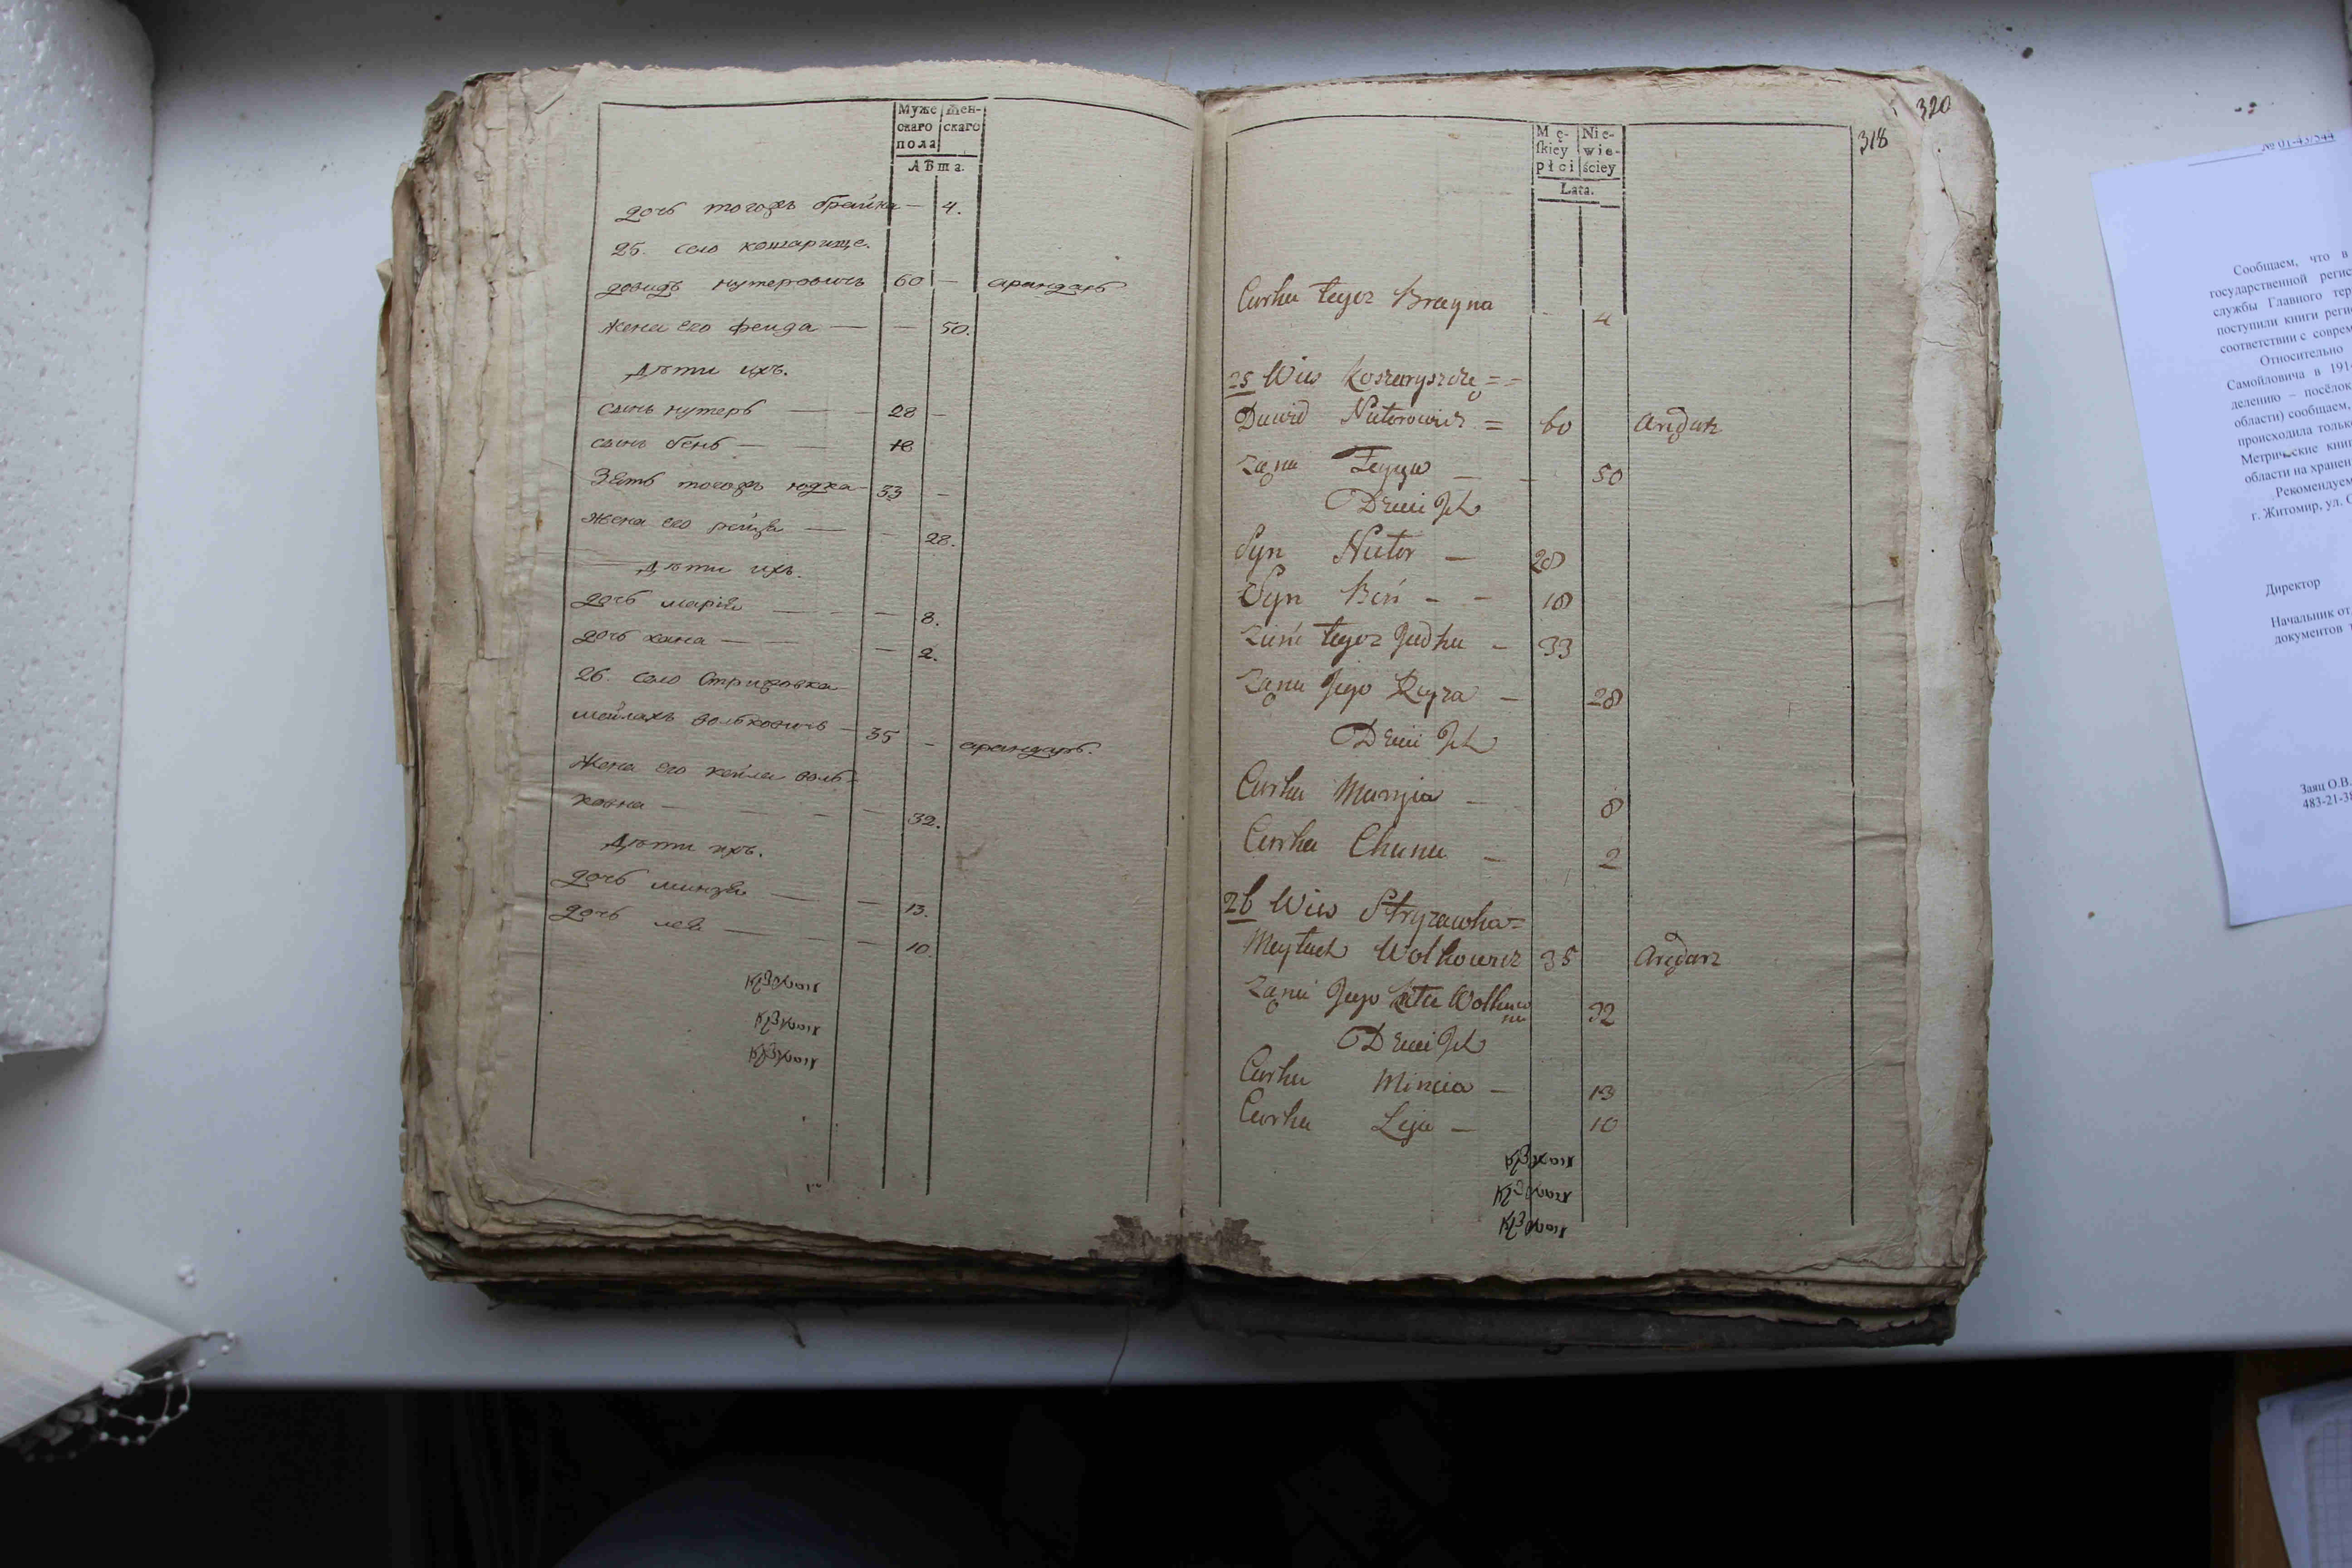 Муже
скаго
пола
Жен-
скаго
Лѣта.
дочь тогожъ брайна — 4.
25. село кошарище.
довидъ нутеровичъ 60 — арандарь
жена его фейга — — 50.
дѣти ихъ.
сынъ нутеръ — — 28 —
сынъ бень — — 18
Зять тогожъ юдка 33 —
жена его рейза — — 28.
дѣти ихъ.
дочь марія — — — 8.
дочь хана — — — 2.
26. село Стрижовка
мейлахъ вольковичъ — 35 — арандарь.
Жена его кейла воль-
ковна — — — 32.
дѣти ихъ.
дочь минзя — — 13.
дочь лея — — — 10.
320
318
Mę-
skiey
płci
Nie-
wie-
ściey
Lata.
Curka tegoz Brayna - 4
25 Wieś Koszaryszcze = =
Dawid Nuterowicz = 60 Arędarz
Zona Feyga — - 50
Dzieci Jch
Syn Nuter — 28
Syn Beń - - 18
Zieńć tegoz Judka - 33
Zona Jego Reyza — 28
Dzieci Jch
Curka Maryia - 8
Curka Chana - 2
26 Wieś Stryzawka =
Meyłach Wolkowicz 35 Arędarz
Zona Jego Keła Wolkow
na 32
Dzieci Jch
Curka Mincia - 13
Curka Leja — 10
№ 01-43/544
Сообщаем, что в
государственной регис
службы Главного тер
поступили книги реги
соответствии с соврем
Относительно
Самойловича в 191
делению – посёлок
области) сообщаем,
происходила только
Метрические книг
области на хранен
Рекомендуем
г. Житомир, ул. О
Директор
Начальник от
документов
Заяц О.В.
483-21-38